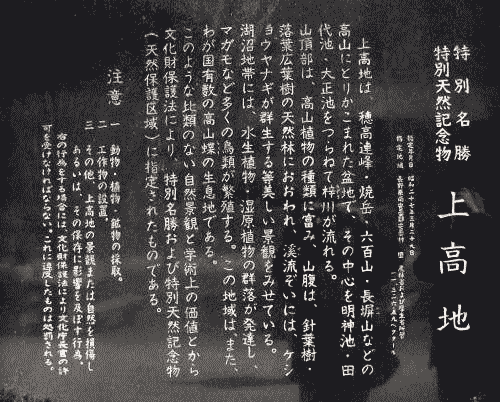 特別名勝
特別天然記念物
上高地
指定年月日 昭和二十七年三月二十九日
指定地域 長野県南安曇郡安曇村
上高地は、穂高連峰・焼岳・六百山・長塀山などの
高山にとりかこまれた盆地で、その中心を明神池・田
代池・大正池をつらねて梓川が流れる。
山頂部は、高山植物の種類に富み、山腹は、針葉樹・
落葉広葉樹の天然林におおわれ、溪流ぞいには、ケシ
ョウヤナギが群生する等美しい景観をみせている。
湖沼地帯には、水生植物・湿原植物の群落が発達し、
マガモなど多くの鳥類が繁殖する。この地域は、また、
わが国有数の高山蝶の生息地である。
このような比類のない自然景観と学術上の価値とから
文化財保護法により、特別名勝および特別天然記念物
(天然保護区域)に指定されたものである。
注意
一 動物・植物・鉱物の採取。
二 工作物の設置。
三 その他、上高地の景観または自然を損傷し
あるいは、その保存に影響を及ぼす行為。
右の行為をする場合には、文化財保護法により文化庁長官の許
可を受けなければならない。これに違反したものは処罰される。